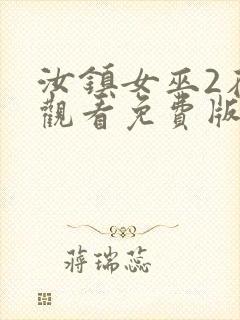 汝鎮女巫2
觀看免費版
蔣瑞蕊